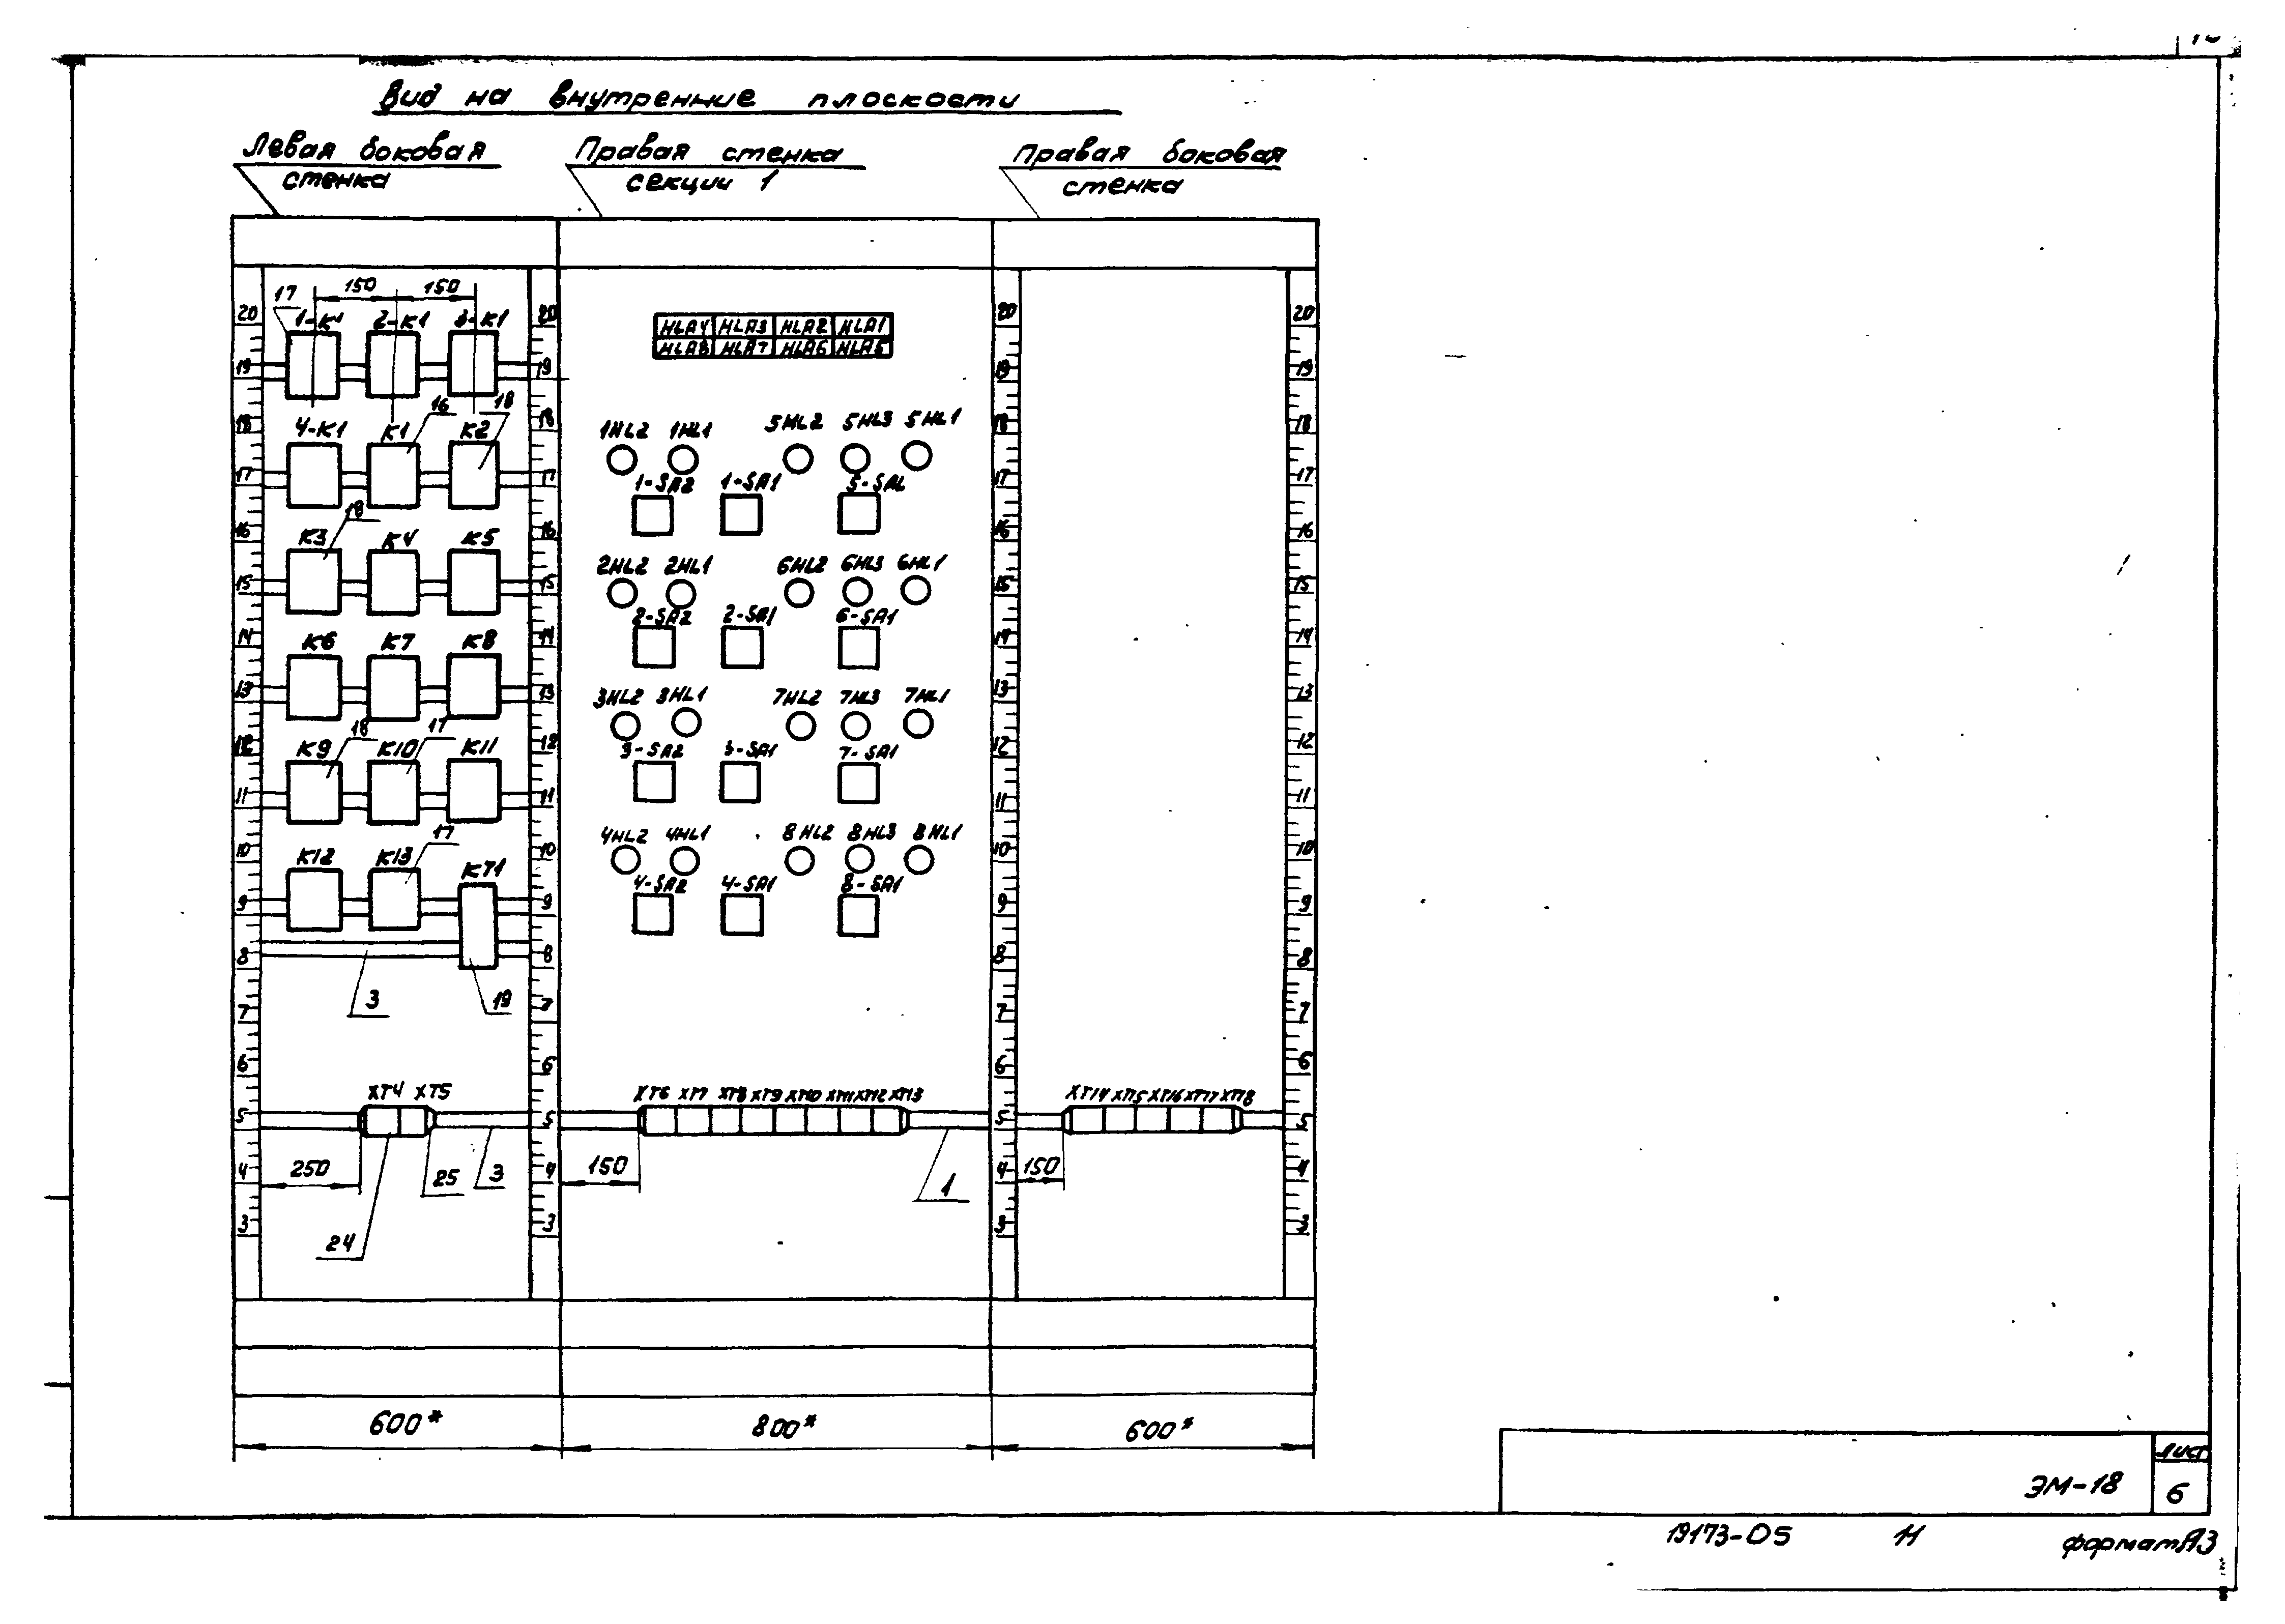 Вид на внутренние плоскости
Левая боковая стенка
Правая стенка секции 1
Правая боковая стенка
150 150
17
1-К1 2-К1 3-К1
16 18
4-К1 К1 К2
18
К3 К4 К5
К6 К7 К8
18 17
К9 К10 К11
17
К12 К13 КТ1
3 19
ХТ4 ХТ5
250 25 3
24
20
19
18
17
16
15
14
13
12
11
10
9
8
7
6
5
4
3
20
19
18
17
16
15
14
13
12
11
10
9
8
7
6
5
4
3
HLA4 HLA3 HLA2 HLA1
HLA8 HLA7 HLA6 HLA5
1HL2 1HL1 5HL2 5HL3 5HL1
1-SA2 1-SA1
2HL2 2HL1 6HL2 6HL3 6HL1
2-SA2 2-SA1 6-SA1
3HL2 3HL1 7HL2 7HL3 7HL1
3-SA2 3-SA1 7-SA1
4HL2 4HL1 8HL2 8HL3 8HL1
4-SA2 4-SA1 8-SA1
ХТ6 ХТ7 ХТ8 ХТ9 ХТ10 ХТ11 ХТ12 ХТ13
150 1
20
19
18
17
16
15
14
13
12
11
10
9
8
7
6
5
4
3
ХТ14 ХТ15 ХТ16 ХТ17 ХТ18
150
20
19
18
17
16
15
14
13
12
11
10
9
8
7
6
5
4
3
600* 800* 600*
Лист
ЭМ-18 6
19173-05 11 формат А3